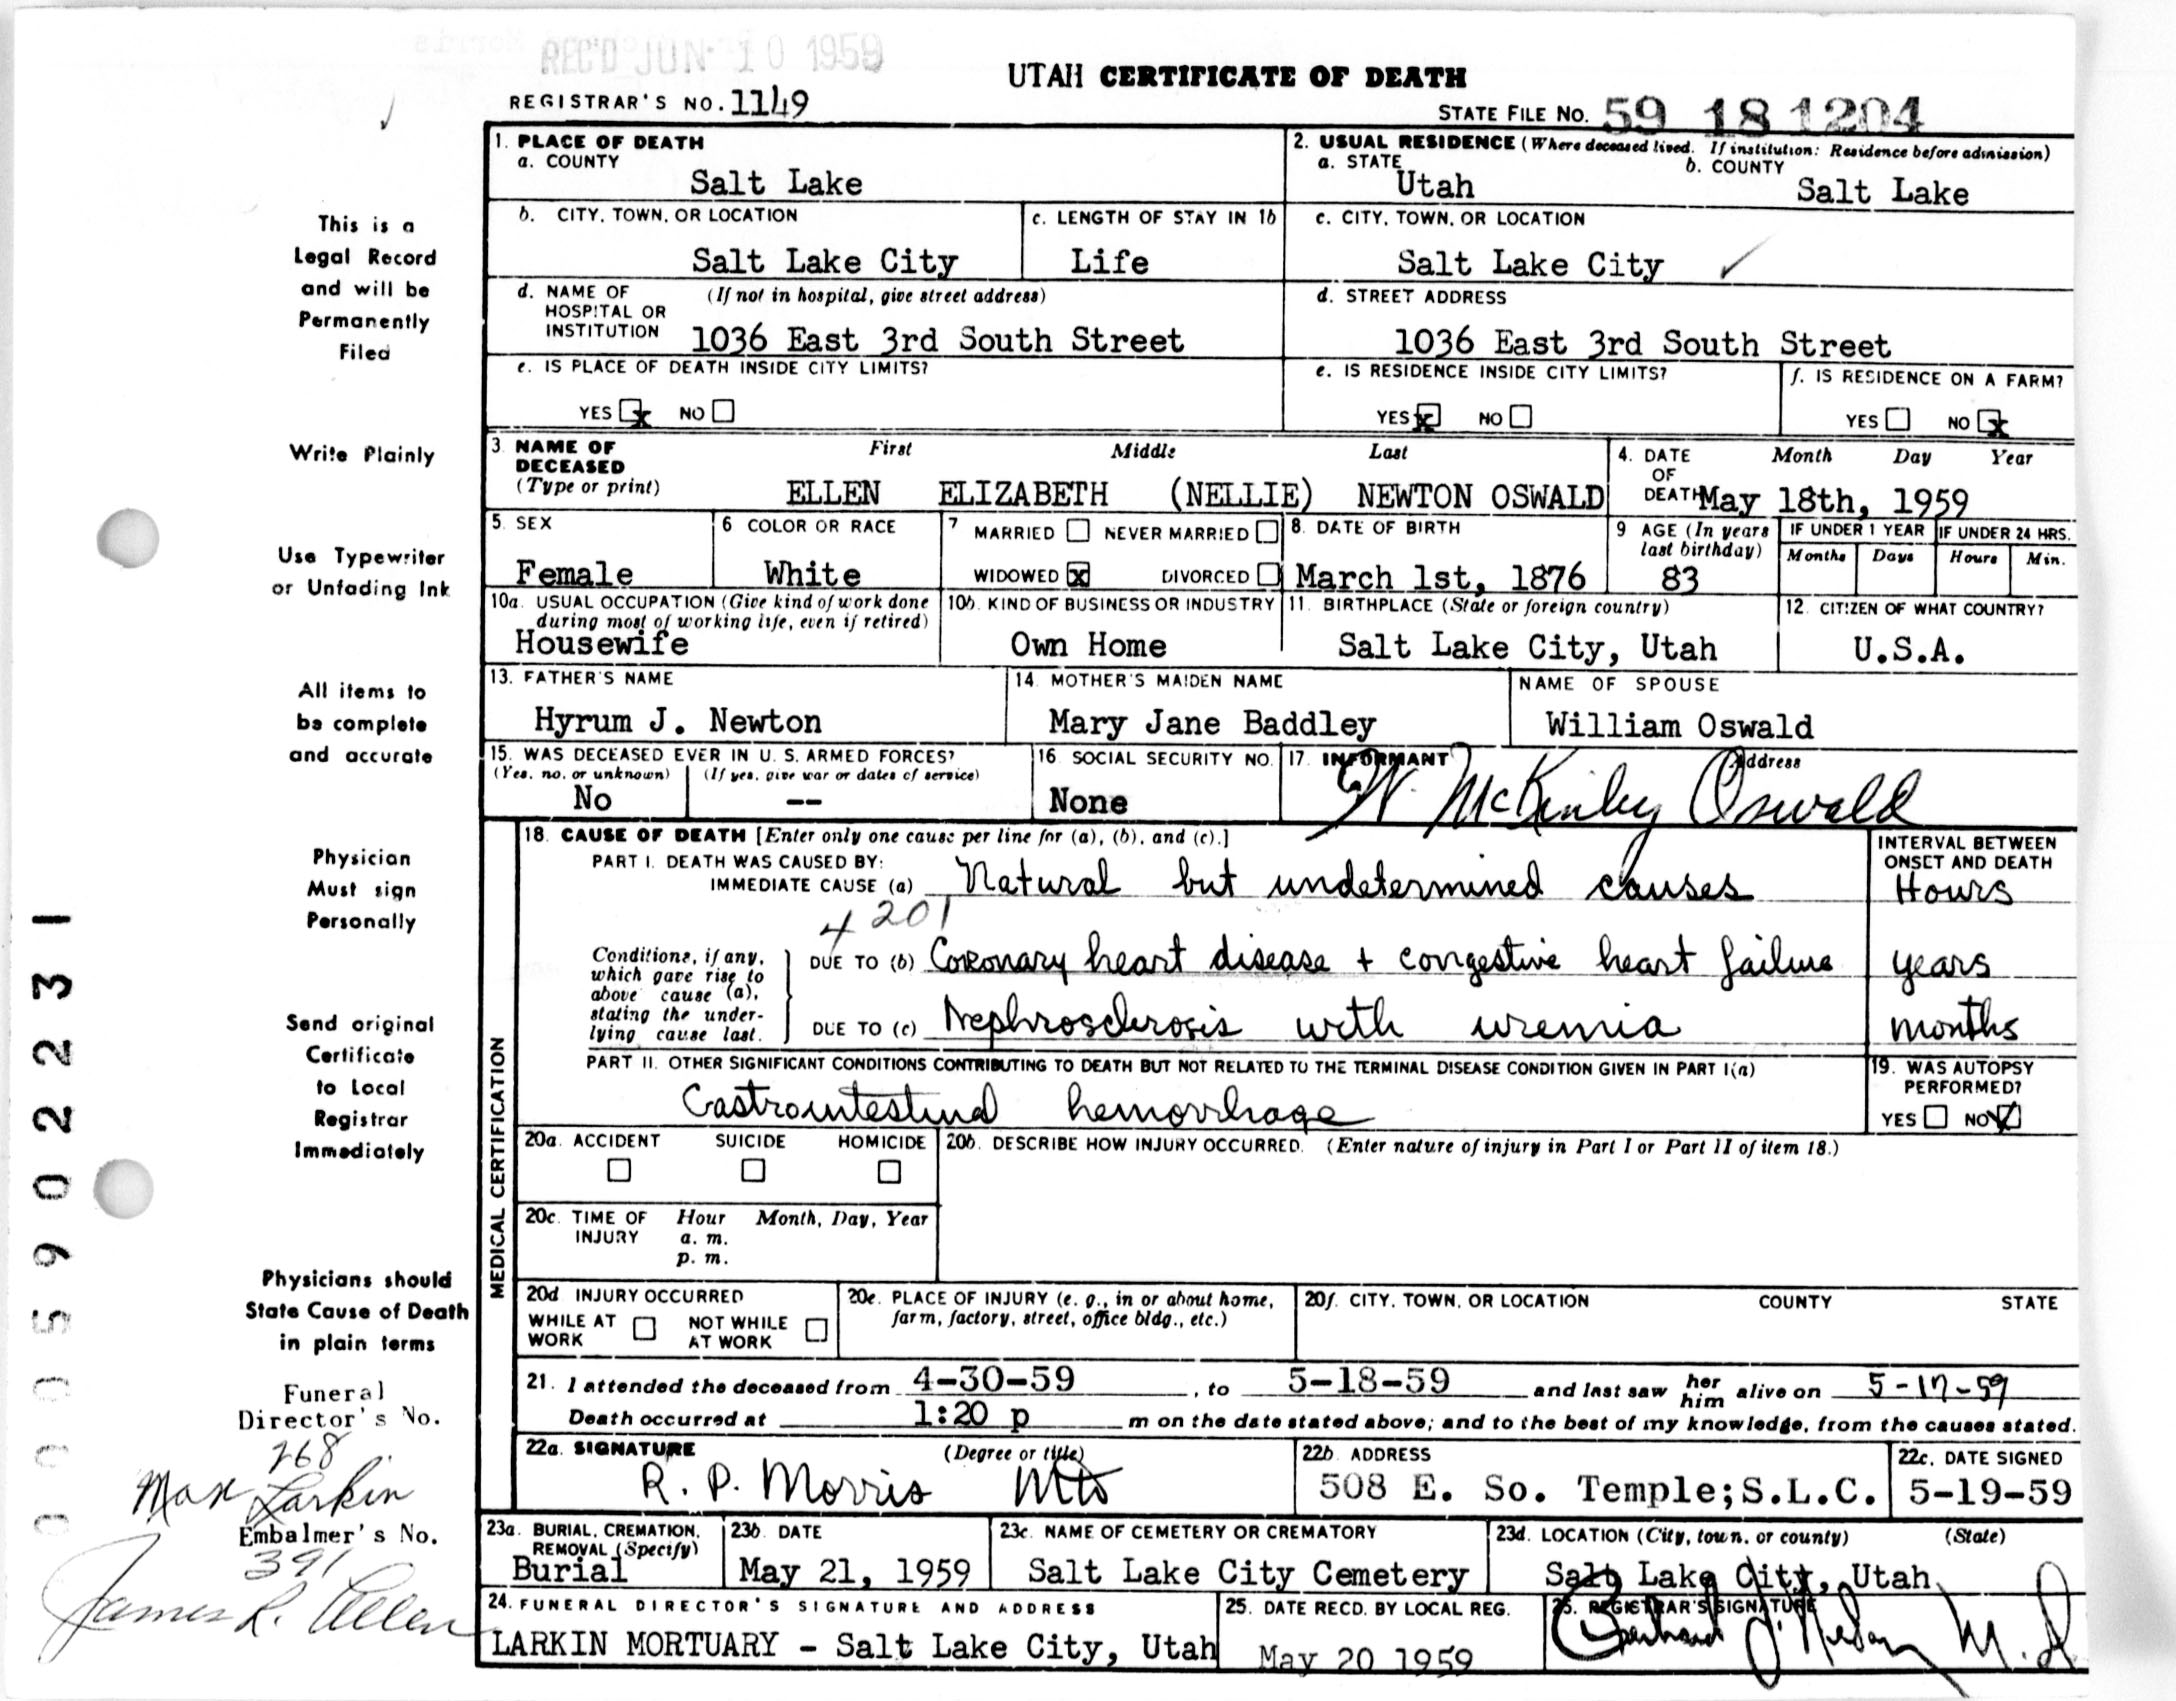 REC'D JUN 10 1959
UTAH CERTIFICATE OF DEATH
REGISTRAR'S NO. 1149
STATE FILE NO. 59 18 1204
1. PLACE OF DEATH
a. COUNTY
Salt Lake
2. USUAL RESIDENCE (Where deceased lived. If institution: Residence before admission)
a. STATE Utah
b. COUNTY Salt Lake
b. CITY, TOWN, OR LOCATION
Salt Lake City
c. LENGTH OF STAY IN 1b
Life
c. CITY, TOWN, OR LOCATION
Salt Lake City
d. NAME OF HOSPITAL OR INSTITUTION (If not in hospital, give street address)
1036 East 3rd South Street
d. STREET ADDRESS
1036 East 3rd South Street
e. IS PLACE OF DEATH INSIDE CITY LIMITS?
YES x NO
e. IS RESIDENCE INSIDE CITY LIMITS?
YES x NO
f. IS RESIDENCE ON A FARM?
YES NO x
3. NAME OF DECEASED (Type or print)
First Middle Last
ELLEN ELIZABETH (NELLIE) NEWTON OSWALD
4. DATE OF DEATH Month Day Year
May 18th, 1959
5. SEX
Female
6 COLOR OR RACE
White
7 MARRIED NEVER MARRIED
WIDOWED x DIVORCED
8. DATE OF BIRTH
March 1st, 1876
9 AGE (In years last birthday)
83
IF UNDER 1 YEAR
Months Days
IF UNDER 24 HRS.
Hours Min.
10a. USUAL OCCUPATION (Give kind of work done during most of working life, even if retired)
Housewife
10b. KIND OF BUSINESS OR INDUSTRY
Own Home
11. BIRTHPLACE (State or foreign country)
Salt Lake City, Utah
12. CITIZEN OF WHAT COUNTRY?
U.S.A.
13. FATHER'S NAME
Hyrum J. Newton
14. MOTHER'S MAIDEN NAME
Mary Jane Baddley
NAME OF SPOUSE
William Oswald
15. WAS DECEASED EVER IN U. S. ARMED FORCES?
(Yes, no, or unknown) (If yes, give war or dates of service)
No --
16. SOCIAL SECURITY NO.
None
17. INFORMANT Address
W. McKinley Oswald
MEDICAL CERTIFICATION
18. CAUSE OF DEATH [Enter only one cause per line for (a), (b), and (c).]
INTERVAL BETWEEN ONSET AND DEATH
PART I. DEATH WAS CAUSED BY:
IMMEDIATE CAUSE (a) Natural but undetermined causes Hours
4201
Conditions, if any, which gave rise to above cause (a), stating the underlying cause last.
DUE TO (b) Coronary heart disease + congestive heart failure years
DUE TO (c) Nephrosclerosis with uremia months
PART II. OTHER SIGNIFICANT CONDITIONS CONTRIBUTING TO DEATH BUT NOT RELATED TO THE TERMINAL DISEASE CONDITION GIVEN IN PART I(a)
Gastrointestinal hemorrhage
19. WAS AUTOPSY PERFORMED?
YES NO
20a. ACCIDENT SUICIDE HOMICIDE
20b. DESCRIBE HOW INJURY OCCURRED. (Enter nature of injury in Part I or Part II of item 18.)
20c. TIME OF INJURY Hour Month, Day, Year
a. m.
p. m.
20d INJURY OCCURRED
WHILE AT WORK NOT WHILE AT WORK
20e. PLACE OF INJURY (e. g., in or about home, farm, factory, street, office bldg., etc.)
20f. CITY, TOWN, OR LOCATION COUNTY STATE
21. I attended the deceased from 4-30-59, to 5-18-59 and last saw her him alive on 5-17-59
Death occurred at 1:20 p m on the date stated above; and to the best of my knowledge, from the causes stated.
22a. SIGNATURE (Degree or title)
R. P. Morris MD
22b. ADDRESS
508 E. So. Temple; S.L.C.
22c. DATE SIGNED
5-19-59
23a. BURIAL, CREMATION, REMOVAL (Specify)
Burial
23b. DATE
May 21, 1959
23c. NAME OF CEMETERY OR CREMATORY
Salt Lake City Cemetery
23d. LOCATION (City, town, or county) (State)
Salt Lake City, Utah
24. FUNERAL DIRECTOR'S SIGNATURE AND ADDRESS
LARKIN MORTUARY - Salt Lake City, Utah
25. DATE RECD. BY LOCAL REG.
May 20 1959
26. REGISTRAR'S SIGNATURE
M.D.
This is a
Legal Record
and will be
Permanently
Filed
Write Plainly
Use Typewriter
or Unfading Ink
All items to
be complete
and accurate
Physician
Must sign
Personally
Send original
Certificate
to Local
Registrar
Immediately
Physicians should
State Cause of Death
in plain terms
Funeral
Director's No.
268
Max Larkin
Embalmer's No.
391
James R. Allen
0005902231